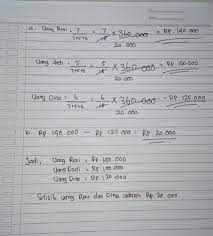 a. Uang Reni = 7 = 7 x 360.000 = Rp. 140.000
7+5+6 18 20.000
Uang Dodi = 5 = 5 x 360.000 = Rp 100.000
7+5+6 18 20.000
Uang Dina = 6 = 6 x 360.000 = Rp. 120.000
7+5+6 18 20.000
b. Rp 140.000 - Rp 120.000 = Rp 20.000
Jadi, Uang Reni = Rp. 140.000
Uang Dodi = Rp 100.000
Uang Dina = Rp 120.000
Selisih uang Reni dan Dina adalah Rp. 20.000